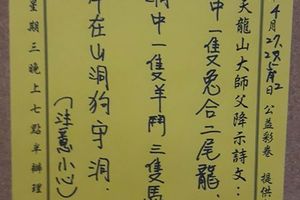 4月27.28
公益彩卷 提供
天龍山大師父降示詩文:
中一隻兔合二尾龍、
中一隻羊鬥三隻馬
在山洞狗守洞.
(注意小心)
星期三晚上七點半辦理